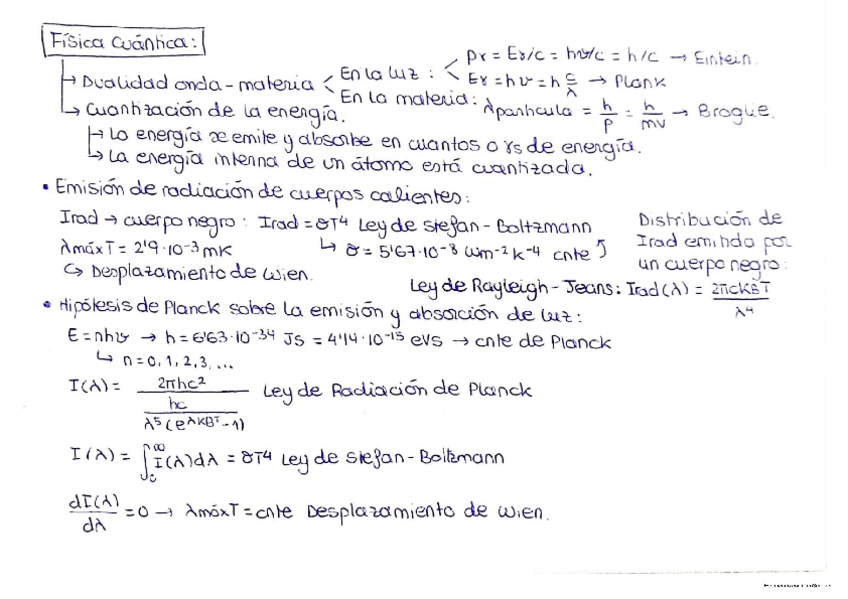 Física Cuántica:
→ Dualidad onda-materia < En la luz: < pγ = Eγ/c = hν/c = h/c → Eintein.
Eγ = hν = h c/λ → Plank
En la materia: λpartícula = h/p = h/mv → Brogue.
→ Cuantización de la energía.
→ La energía se emite y absorbe en cuantos o γs de energía.
→ La energía interna de un átomo está cuantizada.
• Emisión de radiación de cuerpos calientes:
Irad → cuerpo negro: Irad = σT⁴ Ley de Stefan-Boltzmann
λmáxT = 2'9·10⁻³ mK
↳ σ = 5'67·10⁻⁸ Wm⁻²K⁻⁴ cnte
↳ Desplazamiento de Wien.
Distribución de
Irad emitida por
un cuerpo negro:
Ley de Rayleigh-Jeans: Irad(λ) = 2πcKBT/λ⁴
• Hipótesis de Planck sobre la emisión y absorción de luz:
E = nhν → h = 6'63·10⁻³⁴ Js = 4'14·10⁻¹⁵ eVs → cnte de Planck
↳ n = 0, 1, 2, 3, ...
I(λ) = 2πhc² / hc / λ⁵(e λKBT - 1) Ley de Radiación de Planck
I(λ) = ∫₀^∞ I(λ)dλ = σT⁴ Ley de Stefan-Boltzmann
dI(λ)/dλ = 0 → λmáxT = cnte Desplazamiento de Wien.